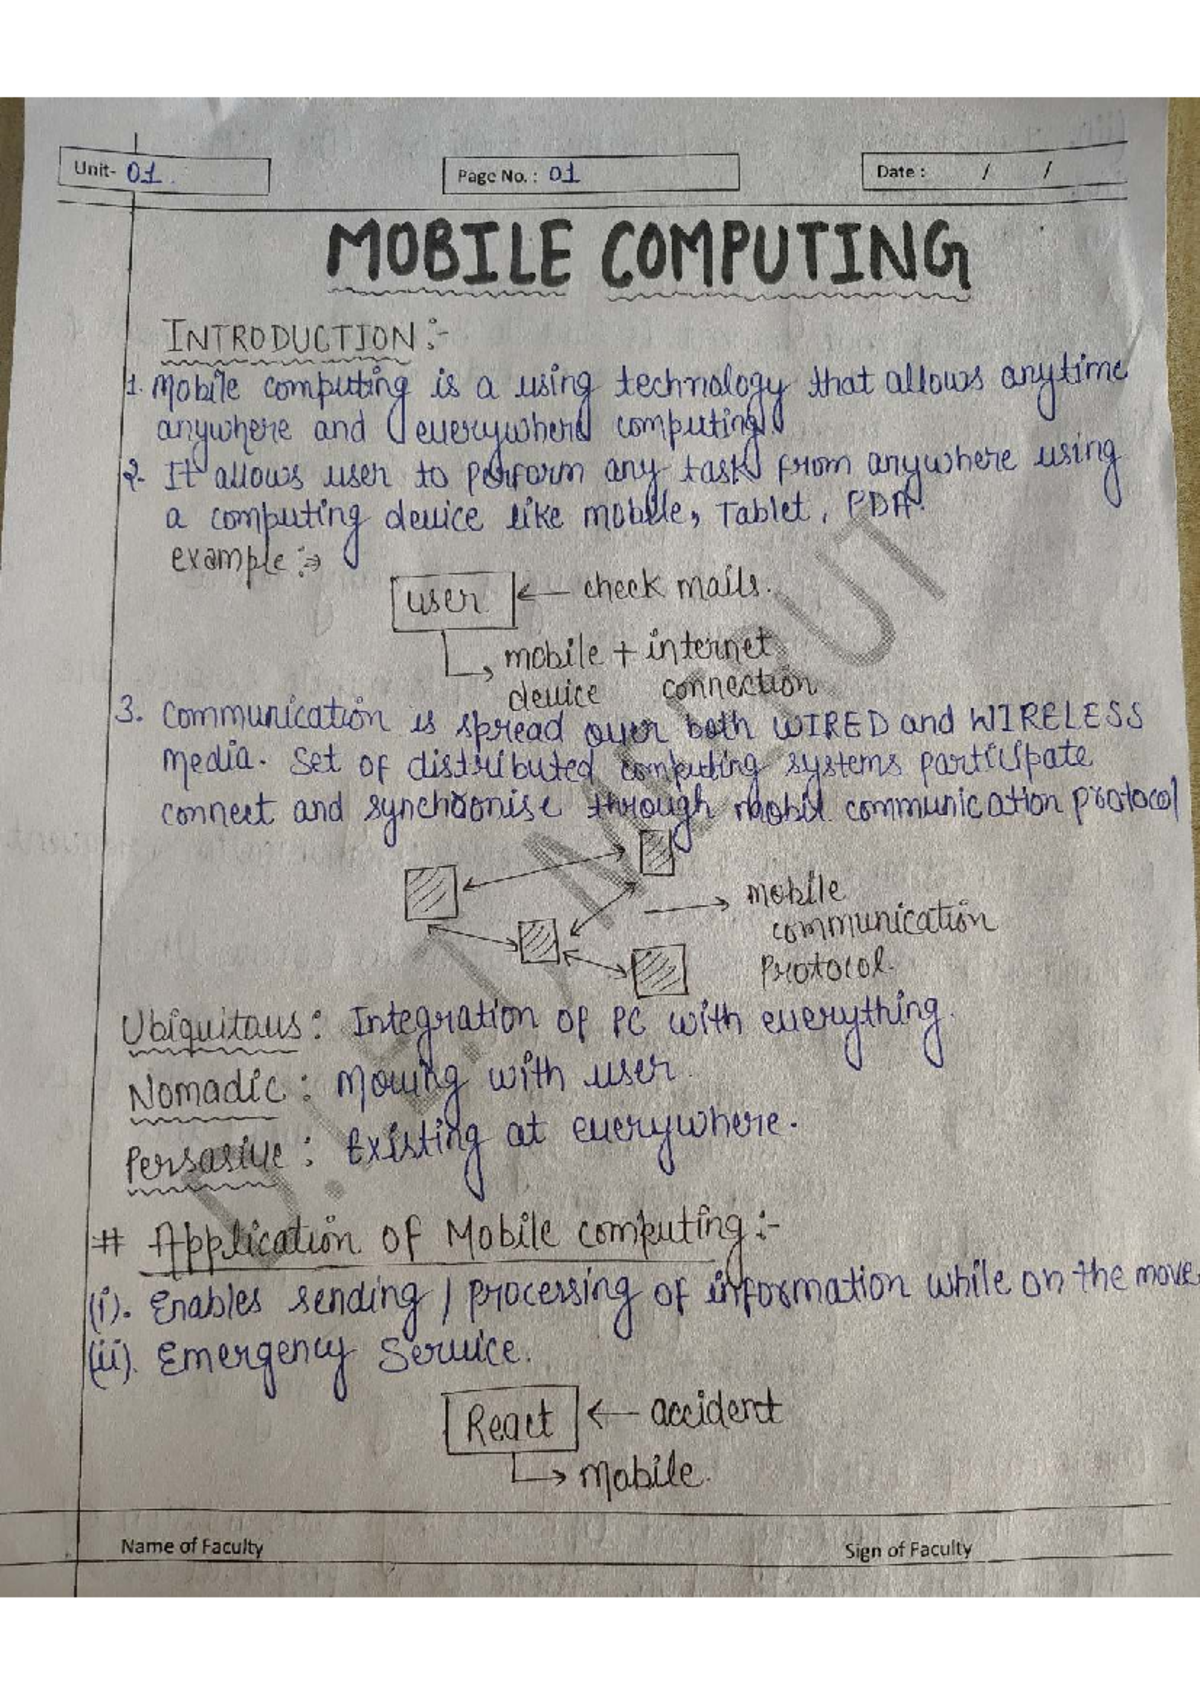 Unit- 01.
Page No. : 01
Date : / /
MOBILE COMPUTING
INTRODUCTION :-
1. Mobile computing is a using technology that allows anytime
anywhere and everywhere computing.
2. It allows user to perform any task from anywhere using
a computing device like mobile, Tablet, PDA.
example :→
user ← check mails.
mobile + internet
device connection
3. Communication is spread over both WIRED and WIRELESS
media. Set of distributed computing systems participate
connect and synchronise through mobil communication protocol
mobile
communication
Protocol.
Ubiquitous : Integration of PC with everything.
Nomadic : Moving with user.
Persasive : Existing at everywhere.
# Application of Mobile computing :-
(i). Enables sending / processing of information while on the move
(ii). Emergency Service.
React ← accident
→ mobile.
Name of Faculty
Sign of Faculty